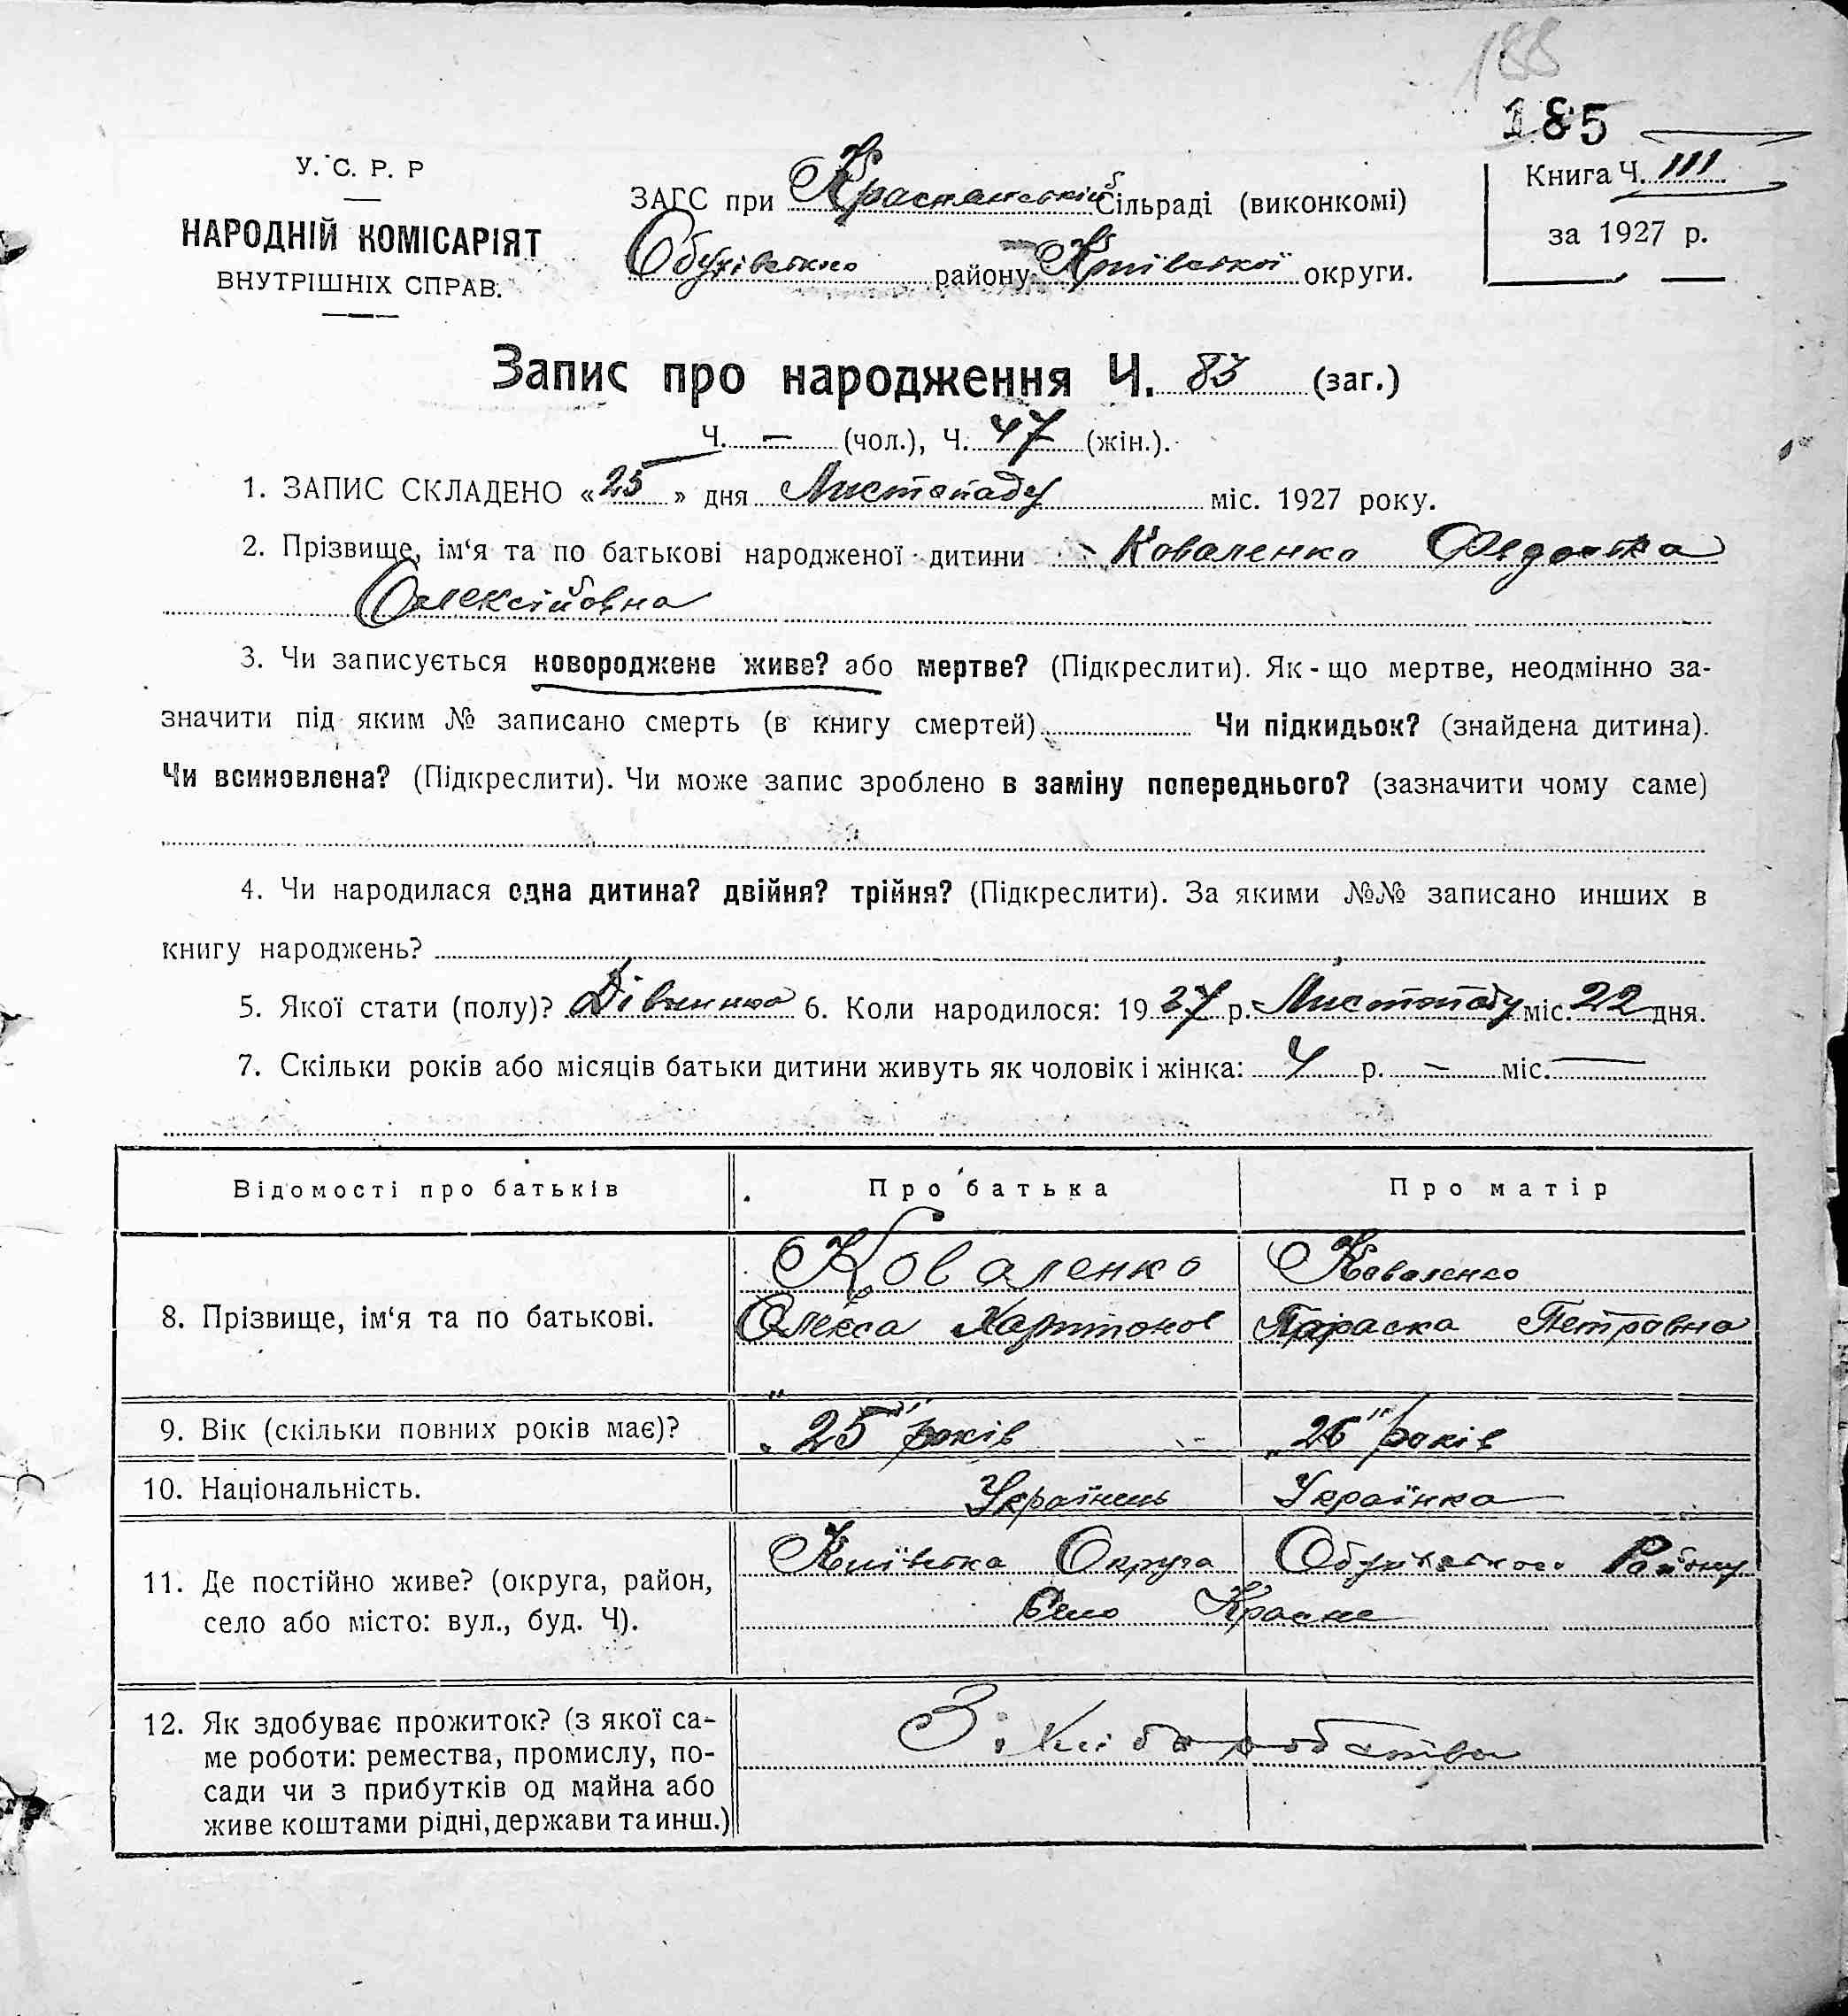 188
185
У. С. Р. Р
НАРОДНІЙ КОМІСАРІЯТ
ВНУТРІШНІХ СПРАВ.
ЗАГС при Краснянській Сільраді (виконкомі)
Обухівського району Київської округи.
Книга Ч. III
за 1927 р.
Запис про народження Ч. 83 (заг.)
Ч. — (чол.), Ч. 47 (жін.).
1. ЗАПИС СКЛАДЕНО «25» дня Листопаду міс. 1927 року.
2. Прізвище, ім‘я та по батькові народженої дитини Коваленко Федоська
Олексійовна
3. Чи записується новороджене живе? або мертве? (Підкреслити). Як - що мертве, неодмінно за-
значити під яким № записано смерть (в книгу смертей) Чи підкидьок? (знайдена дитина).
Чи всиновлена? (Підкреслити). Чи може запис зроблено в заміну попереднього? (зазначити чому саме)
4. Чи народилася одна дитина? двійня? трійня? (Підкреслити). За якими №№ записано инших в
книгу народжень?
5. Якої стати (полу)? Дівчинка 6. Коли народилося: 1927 р. Листопаду міс. 22 дня.
7. Скільки років або місяців батьки дитини живуть як чоловік і жінка: 4 р. — міс. —
Відомості про батьків Про батька Про матір
8. Прізвище, ім‘я та по батькові. Коваленко Коваленко
Олекса Харитонов Параска Петровна
9. Вік (скільки повних років має)? „25" років „26" років
10. Національність. Українець Українка
11. Де постійно живе? (округа, район, Київська Округа Обухівського Району
село або місто: вул., буд. Ч). Село Красне
12. Як здобуває прожиток? (з якої са- З хліборобства
ме роботи: ремества, промислу, по-
сади чи з прибутків од майна або
живе коштами рідні, держави та инш.)